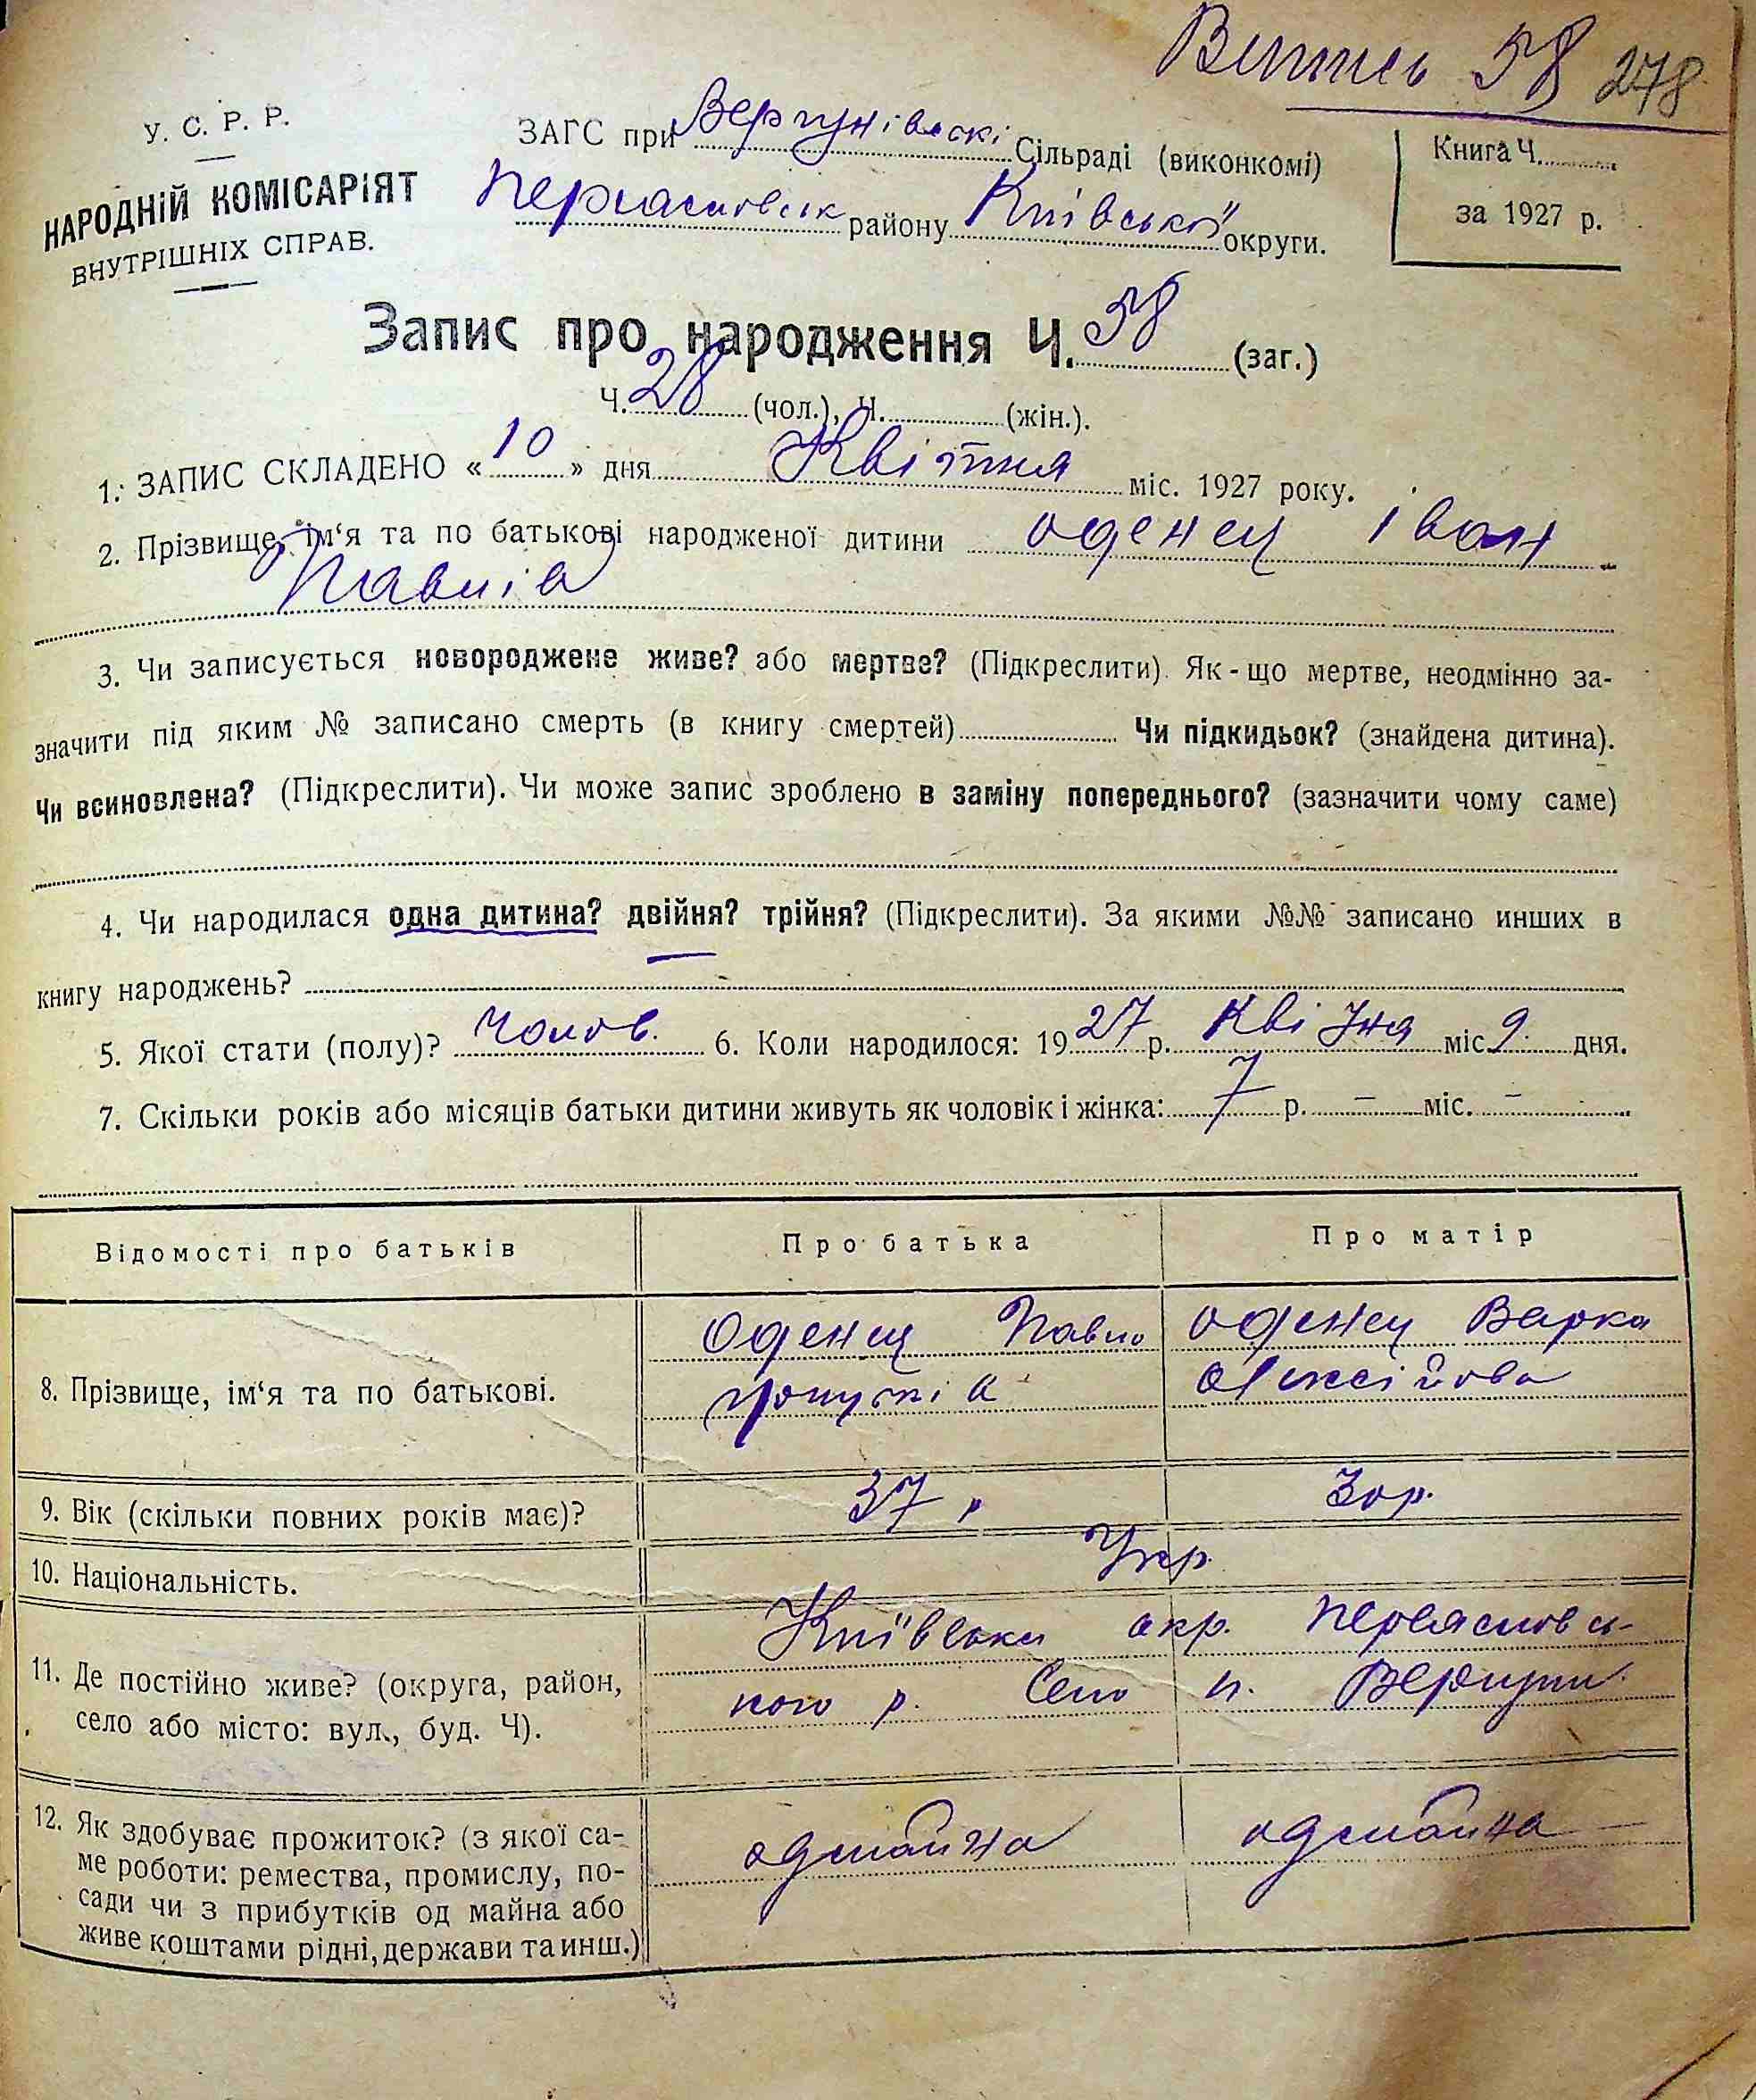 Витись 58 278
У. С. Р. Р.
НАРОДНІЙ КОМІСАРІЯТ
ВНУТРІШНІХ СПРАВ.
ЗАГС при Вергунівскі Сільраді (виконкомі)
району Київської округи.
Книга Ч.
за 1927 р.
Запис про народження Ч. 58 (заг.)
Ч. 28 (чол.), Ч. (жін.).
1. ЗАПИС СКЛАДЕНО « 10 » дня Квітня міс. 1927 року.
2. Прізвище, ім‘я та по батькові народженої дитини Оденец Іван
Павлів
3. Чи записується новороджене живе? або мертве? (Підкреслити). Як-що мертве, неодмінно за-
значити під яким № записано смерть (в книгу смертей) Чи підкидьок? (знайдена дитина).
Чи всиновлена? (Підкреслити). Чи може запис зроблено в заміну попереднього? (зазначити чому саме)
4. Чи народилася одна дитина? двійня? трійня? (Підкреслити). За якими №№ записано инших в
книгу народжень?
5. Якої стати (полу)? Чолов. 6. Коли народилося: 1927 р. Квітня міс 9. дня.
7. Скільки років або місяців батьки дитини живуть як чоловік і жінка: 7 р. – міс. –
Відомості про батьків Про батька Про матір
8. Прізвище, ім‘я та по батькові.
Оденец Павло
Оденец Варка
Олексійова
9. Вік (скільки повних років має)? 37 р 30 р.
10. Національність. Укр.
11. Де постійно живе? (округа, район,
село або місто: вул., буд. Ч).
Київська окр. Переясловсь-
кого р. Село п. Вергуни.
12. Як здобуває прожиток? (з якої са-
ме роботи: ремества, промислу, по-
сади чи з прибутків од майна або
живе коштами рідні, держави та инш.)
одмайна одмайна